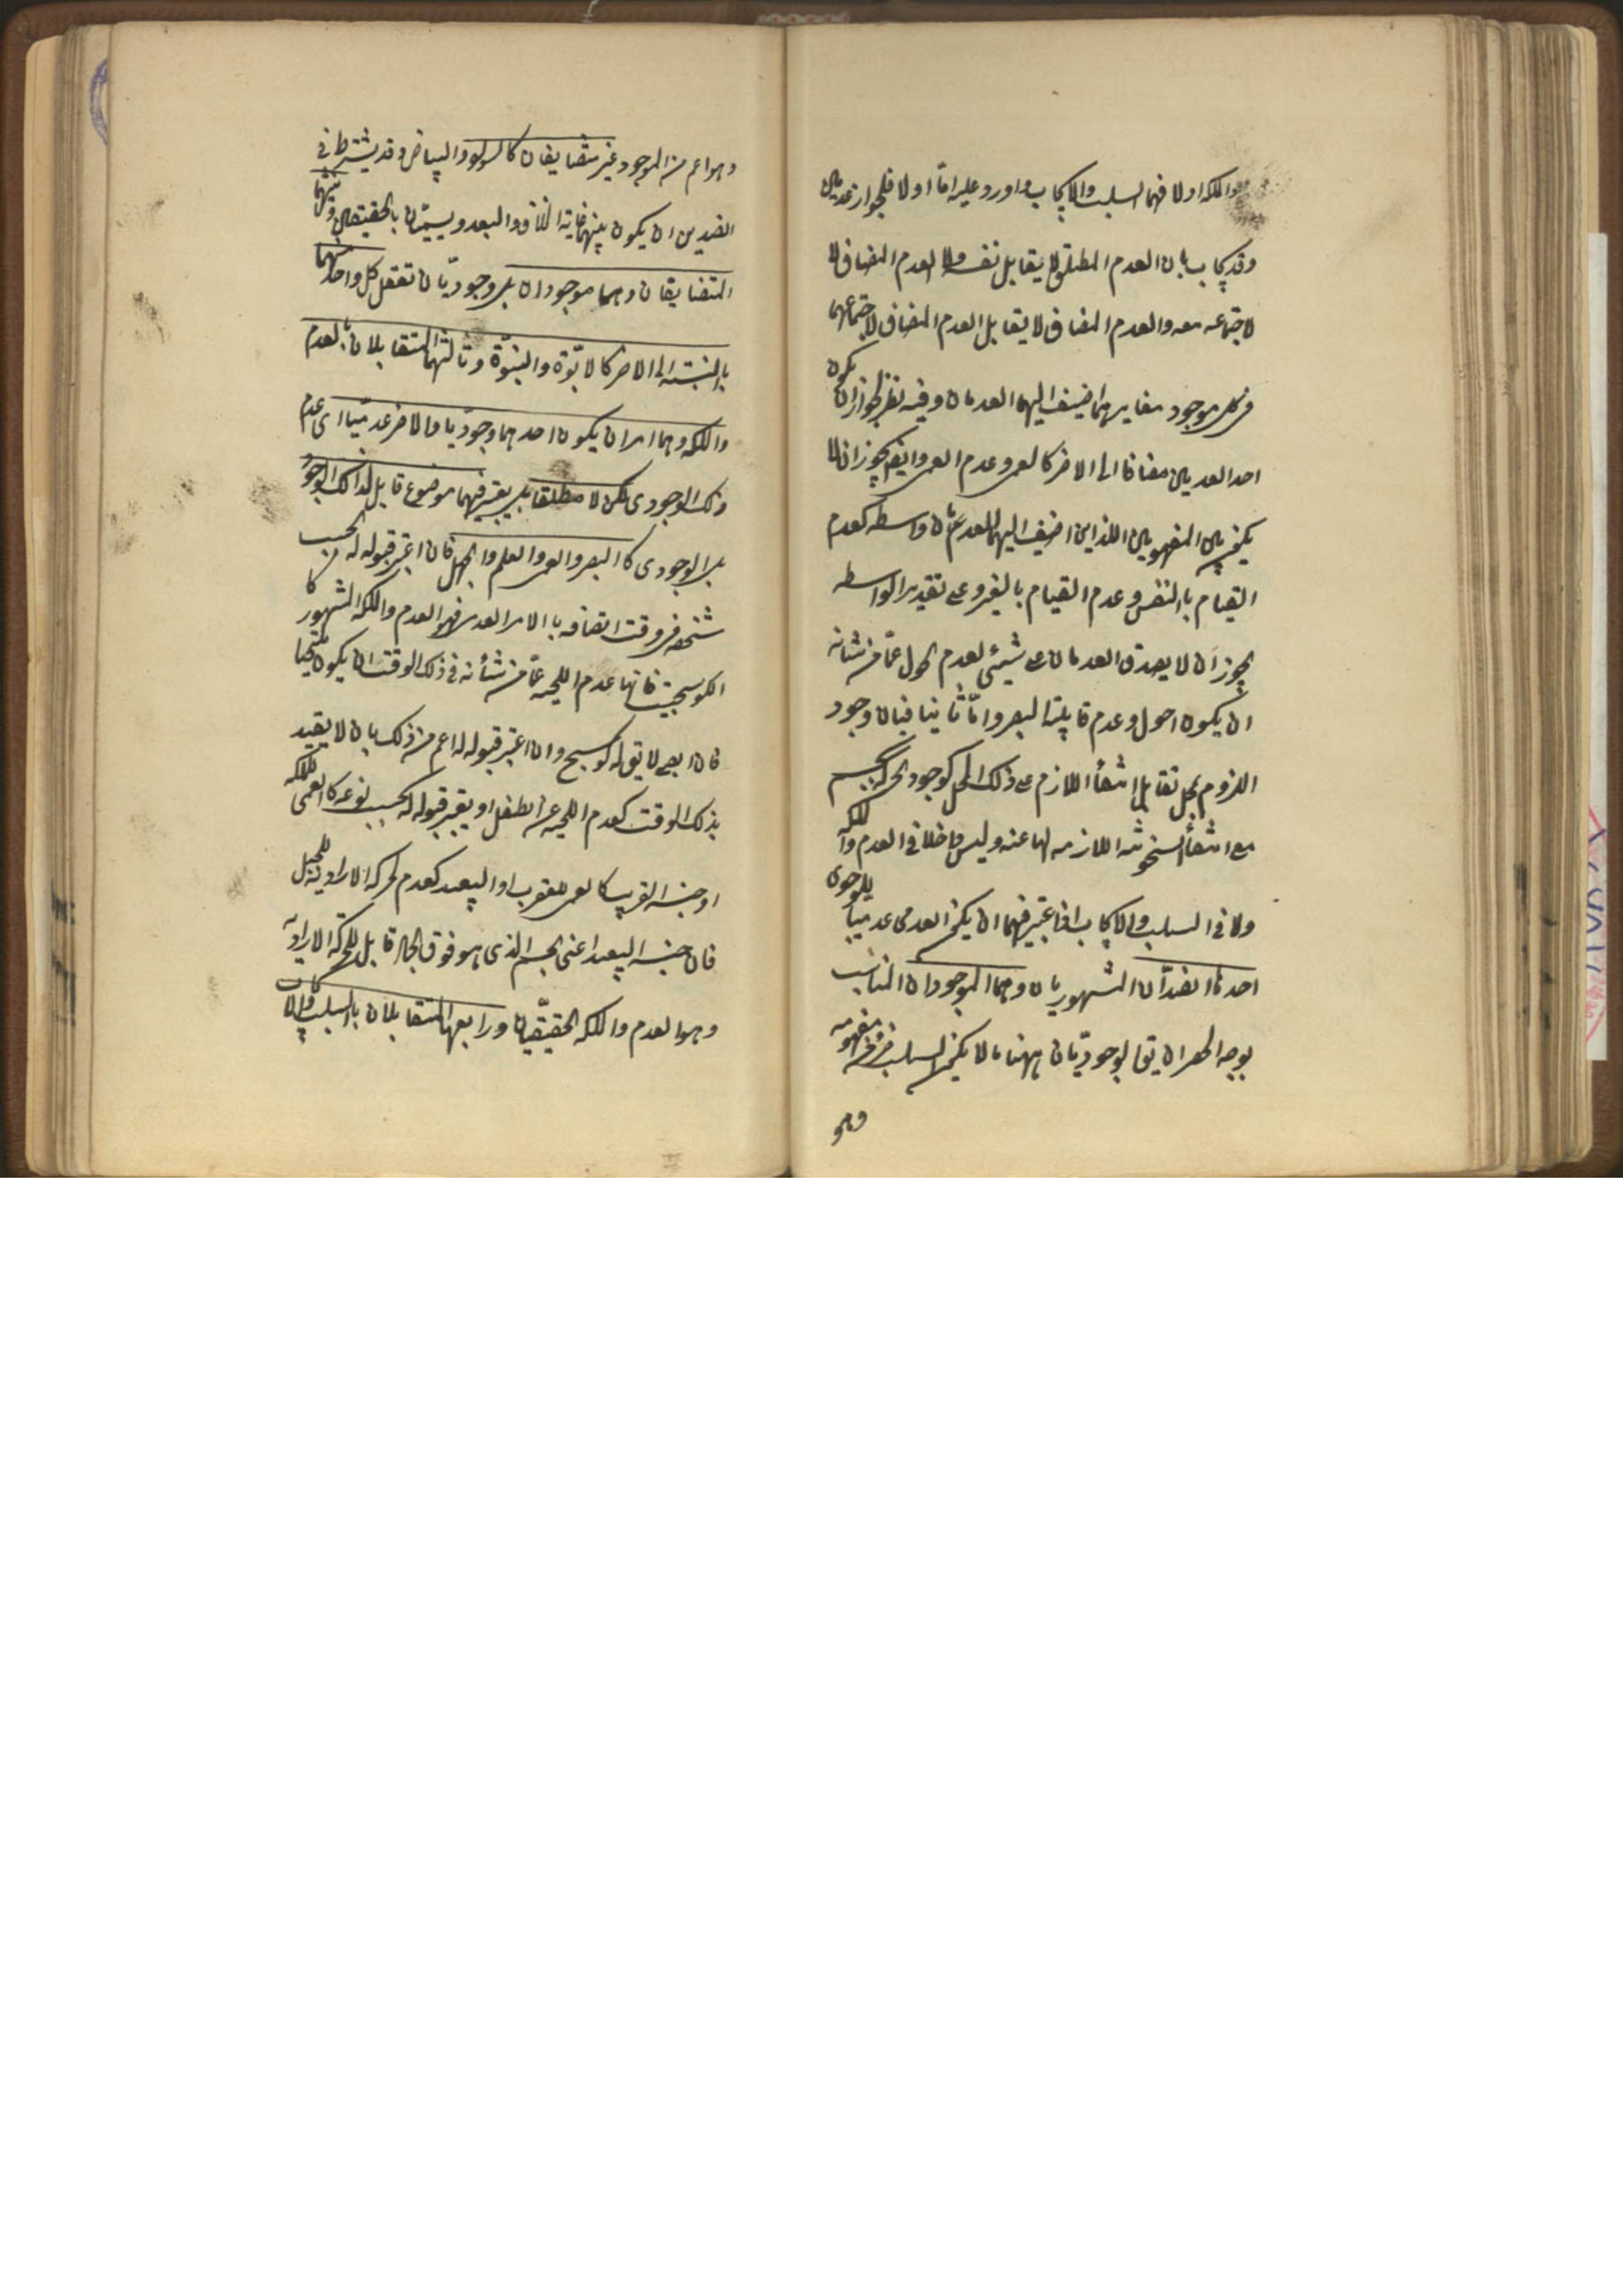 والملكة اولا فهما السلب والايجاب واورد عليه امّا اولا فلجواز عدميين
وقد يجاب بان العدم المطلق لا يقابل نفسه ولا العدم المضاف
لاجتماعه معه والعدم المضاف لا يقابل العدم المضاف لاجتماعهما
فى كل موجود مغاير لما اضيف اليهما العدمان وفيه نظر لجواز ان يكون
احد العدمين مضافا الى الاخر كالعمى وعدم العمى وايضا يجوز ان لا
يكون بين المفهومين اللذين اضيف اليهما العدمان واسطه كعدم
القيام بالنفس وعدم القيام بالغير وعلى تقدير الواسطه
يجوز ان لا يصدق العدمان على شيئى لعدم الحول عمّا من شانه
ان يكون احول وعدم قابلية البصر وامّا ثانيا فبان وجود
اللزوم لمحل تقابل انتفأ اللازم عن ذلك المحل كوجود الحركة لجسم
مع انتفأ السخونه اللازمه لها عنه وليس داخلا فى العدم والملكه
ولا فى السلب والايجاب اذا عتبر فيهما ان يكون العدمى عدميا للوجودى
احدها الضدّان المشهوريان وهما الموجودان المناسب
بوجه الحصر ان يق الوجوديّان ههنا ما لا يكون السلب جزء من مفهومه
وهو
وهو اعم من الموجود غير متضايفان كالسواد والبياض وقد يشترط فى
الضدين ان يكون بينهما غاية الخلاف والبعد ويسمّيان بالحقيقيين وثانيهما
المتضايفان وهما موجودان بل وجوديّان تعقل كل واحد منهما
بالنسبته الى الاخر كالابّوة والبنوّة وثالثها المتقابلان بالعدم
والملكه وهما امران يكون احدهما وجوديّا والاخر عدميّا اى عدم
ذلك الوجودى لكن لا مطلقا بل يعتبر فيهما موضوع قابل لذالك الوجود
بل الوجودى كالبصر والعمى والعلم والجهل فان اعتبر قبوله له بحسب
شخصه فى وقت اتصافه بالامر العدمى فهو العدم والملكه المشهور كا
الكوسجية فانها عدم اللحيه عمّا من شأنه فى ذلك الوقت ان يكون ملتحيا
فان الصبى لا يق له كوسج وان اعتبر قبوله له اعم من ذلك بان لا يقيد
بذلك الوقت كعدم اللحيه عن الطفل او يعتبر قبوله له بحسب نوعه كالعمى للاكمه
او جنسه القريب كالعمى للعقرب او البعيد كعدم الحركه الاراديه للجبل
فان جنسه البعيد اعنى الجسم الذى هو فوق الجماد قابل للحركة الاراديّه
وهو العدم والملكه الحقيقيّان ورابعها المتقابلان بالسلب والايجاب